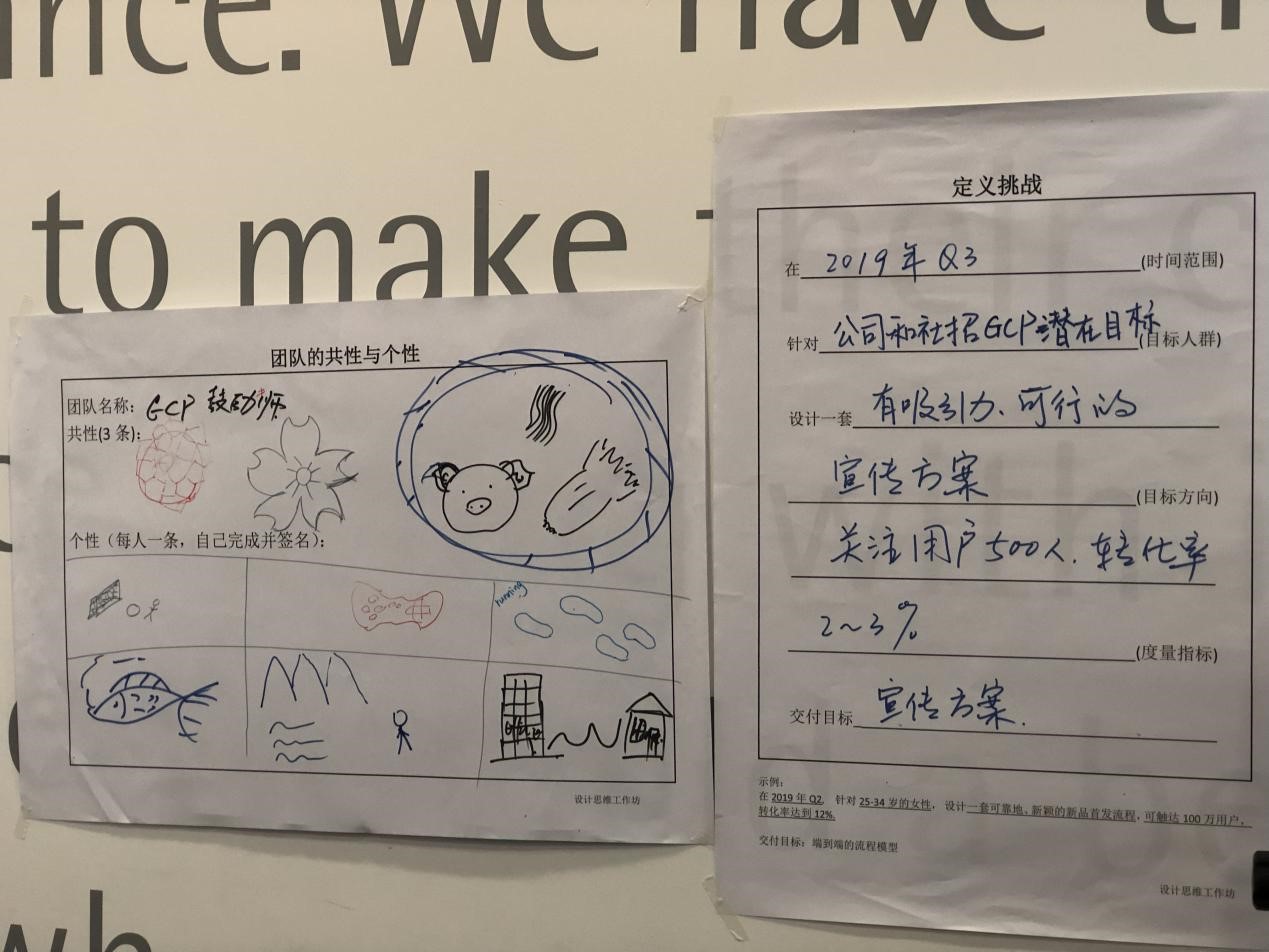 nce. We have th
to make their c
团队的共性与个性
团队名称：GCP 鼓励师
共性(3 条)：
个性（每人一条，自己完成并签名）：
running
设计思维工作坊
定义挑战
在 2019年 Q3 (时间范围)
针对 公司和社招GCP潜在目标 (目标人群)
设计一套 有吸引力、可行的
宣传方案 (目标方向)
关注用户500人，转化率
2~3% (度量指标)
交付目标 宣传方案.
示例：
在 2019 年 Q2, 针对 25-34 岁的女性，设计一套可靠地、新颖的新品首发流程，可触达 100 万用户，
转化率达到 12%.
交付目标：端到端的流程模型
设计思维工作坊
wh